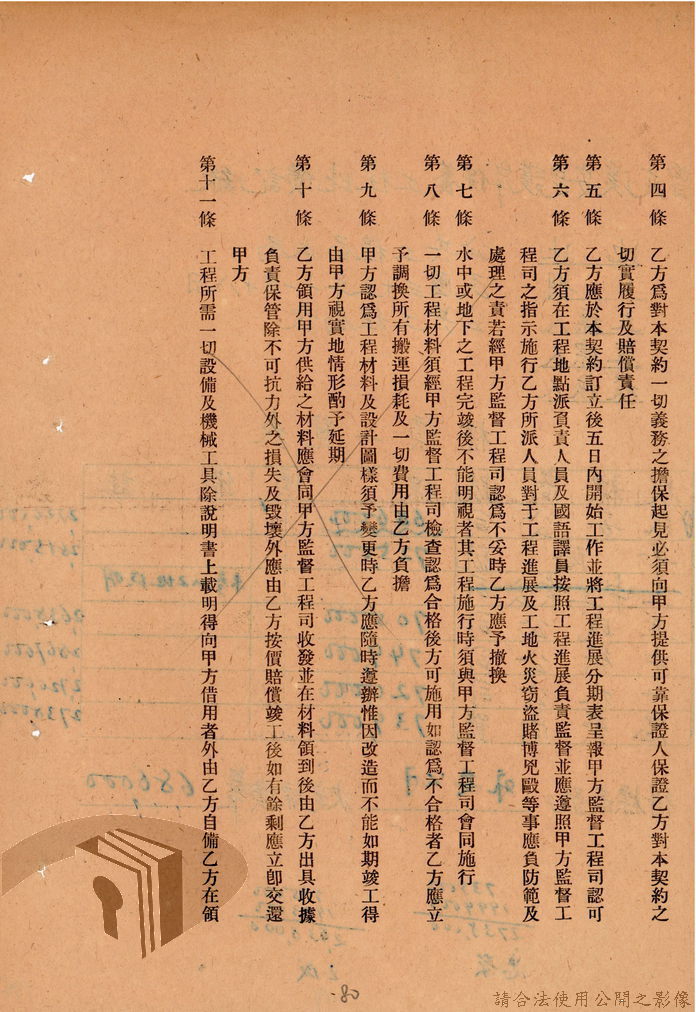 第四條　乙方爲對本契約一切義務之擔保起見必須向甲方提供可靠保證人保證乙方對本契約之
切實履行及賠償責任
第五條　乙方應於本契約訂立後五日內開始工作並將工程進展分期表呈報甲方監督工程司認可
第六條　乙方須在工程地點派負責人員及國語譯員按照工程進展負責監督並應遵照甲方監督工
程司之指示施行乙方所派人員對于工程進展及工地火災窃盜賭博兇毆等事應負防範及
處理之責若經甲方監督工程司認爲不妥時乙方應予撤換
第七條　水中或地下之工程完竣後不能明視者其工程施行時須與甲方監督工程司會同施行
第八條　一切工程材料須經甲方監督工程司檢查認爲合格後方可施用如認爲不合格者乙方應立
予調換所有搬運損耗及一切費用由乙方負擔
第九條　甲方認爲工程材料及設計圖樣須予變更時乙方應隨時遵辦惟因改造而不能如期竣工得
由甲方視實地情形酌予延期
第十條　乙方領用甲方供給之材料應會同甲方監督工程司收發並在材料領到後由乙方出具收據
負責保管除不可抗力外之損失及毀壞外應由乙方按價賠償竣工後如有餘剩應立卽交還
甲方
第十一條　工程所需一切設備及機械工具除說明書上載明得向甲方借用者外由乙方自備乙方在領
80
請合法使用公開之影像